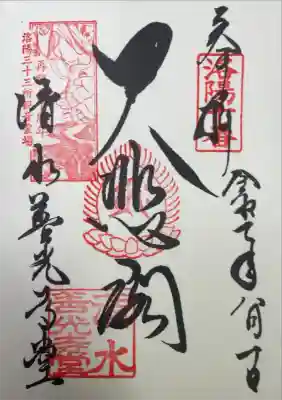 奉拝
洛陽十番
令和年八月
大悲閣
再
洛陽三十三所
清水善光寺堂
清水
善光寺堂